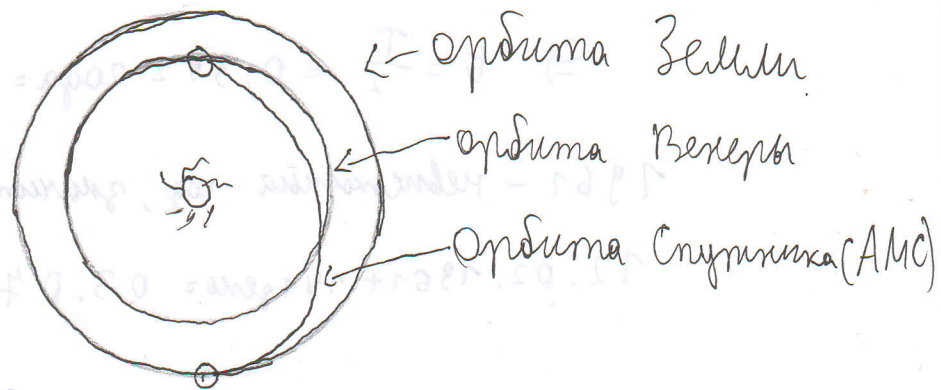 орбита Земли
орбита Венеры
орбита Спутника (АМС)